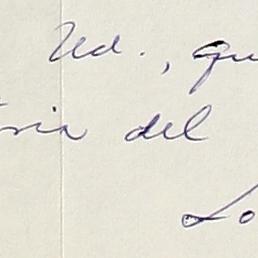 Ud., qu
ria del
Lo